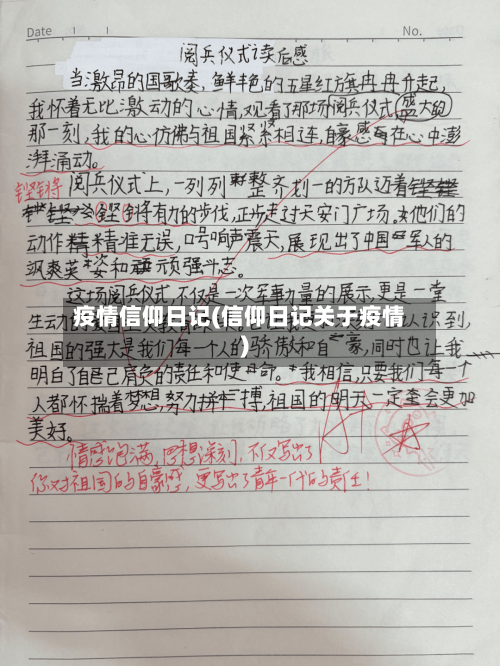 Date / /
No.
阅兵仪式读后感
当激昂的国歌奏,鲜艳的五星红旗冉冉升起,
我怀着无比激动的心情,观看了那场阅兵仪式盛大的
那一刻,我的心仿佛与祖国紧紧相连,自豪感在心中澎
湃涌动。
铿锵 阅兵仪式上,一列列整齐划一的方队迈着
铿锵有力的步伐,正步走过天安门广场。他们的
动作精准无误,口号响声震天,展现出了中国军人的
飒爽英姿和顽强斗志。
这场阅兵仪式,不仅是一次军事力量的展示,更是一堂
生动
疫情信仰日记(信仰日记关于疫情
)
认识到,
祖国的强大是我们每一个人的骄傲和自豪,同时也让我
明白了自己肩负的责任和使命。我相信,只要我们每一个
人都怀揣着梦想,努力拼搏,祖国的明天一定会更加
美好。
情感饱满,思想深刻,不仅写出了
你对祖国的自豪感,更写出了青年一代的责任!